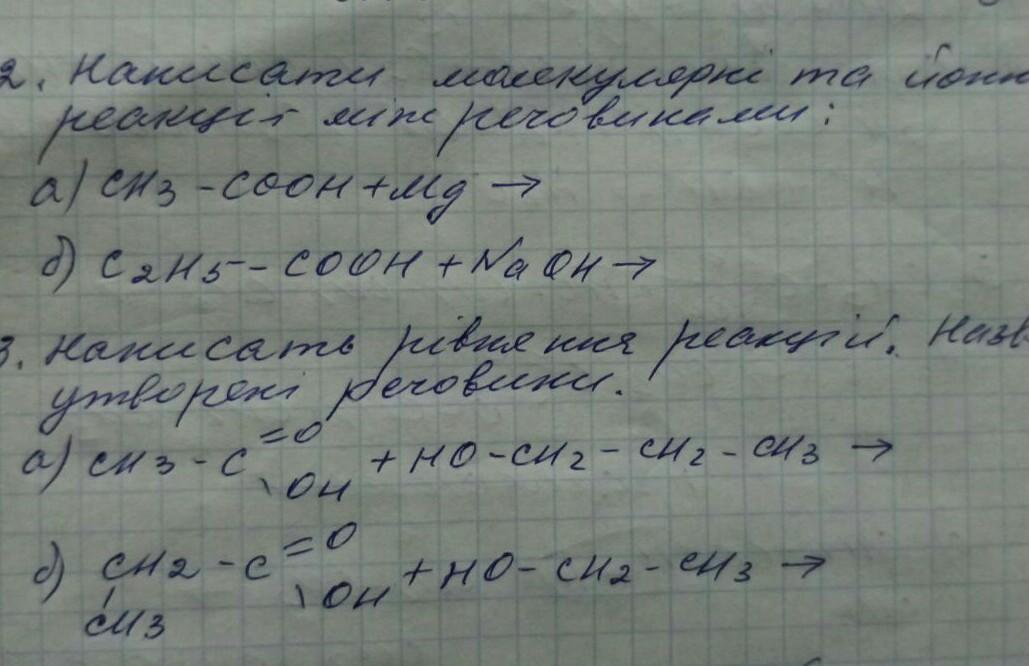 2. Написати молекулярні та йонн
реакції між речовинами:
а) CH3 - COOH + Mg →
б) C2H5 - COOH + NaOH →
3. Написать рівняння реакцій. Назв
утворені речовини.
=O
а) CH3 - C + HO - CH2 - CH2 - CH3 →
\ OH
=O
б) CH2 - C + HO - CH2 - CH3 →
\ OH
CH3